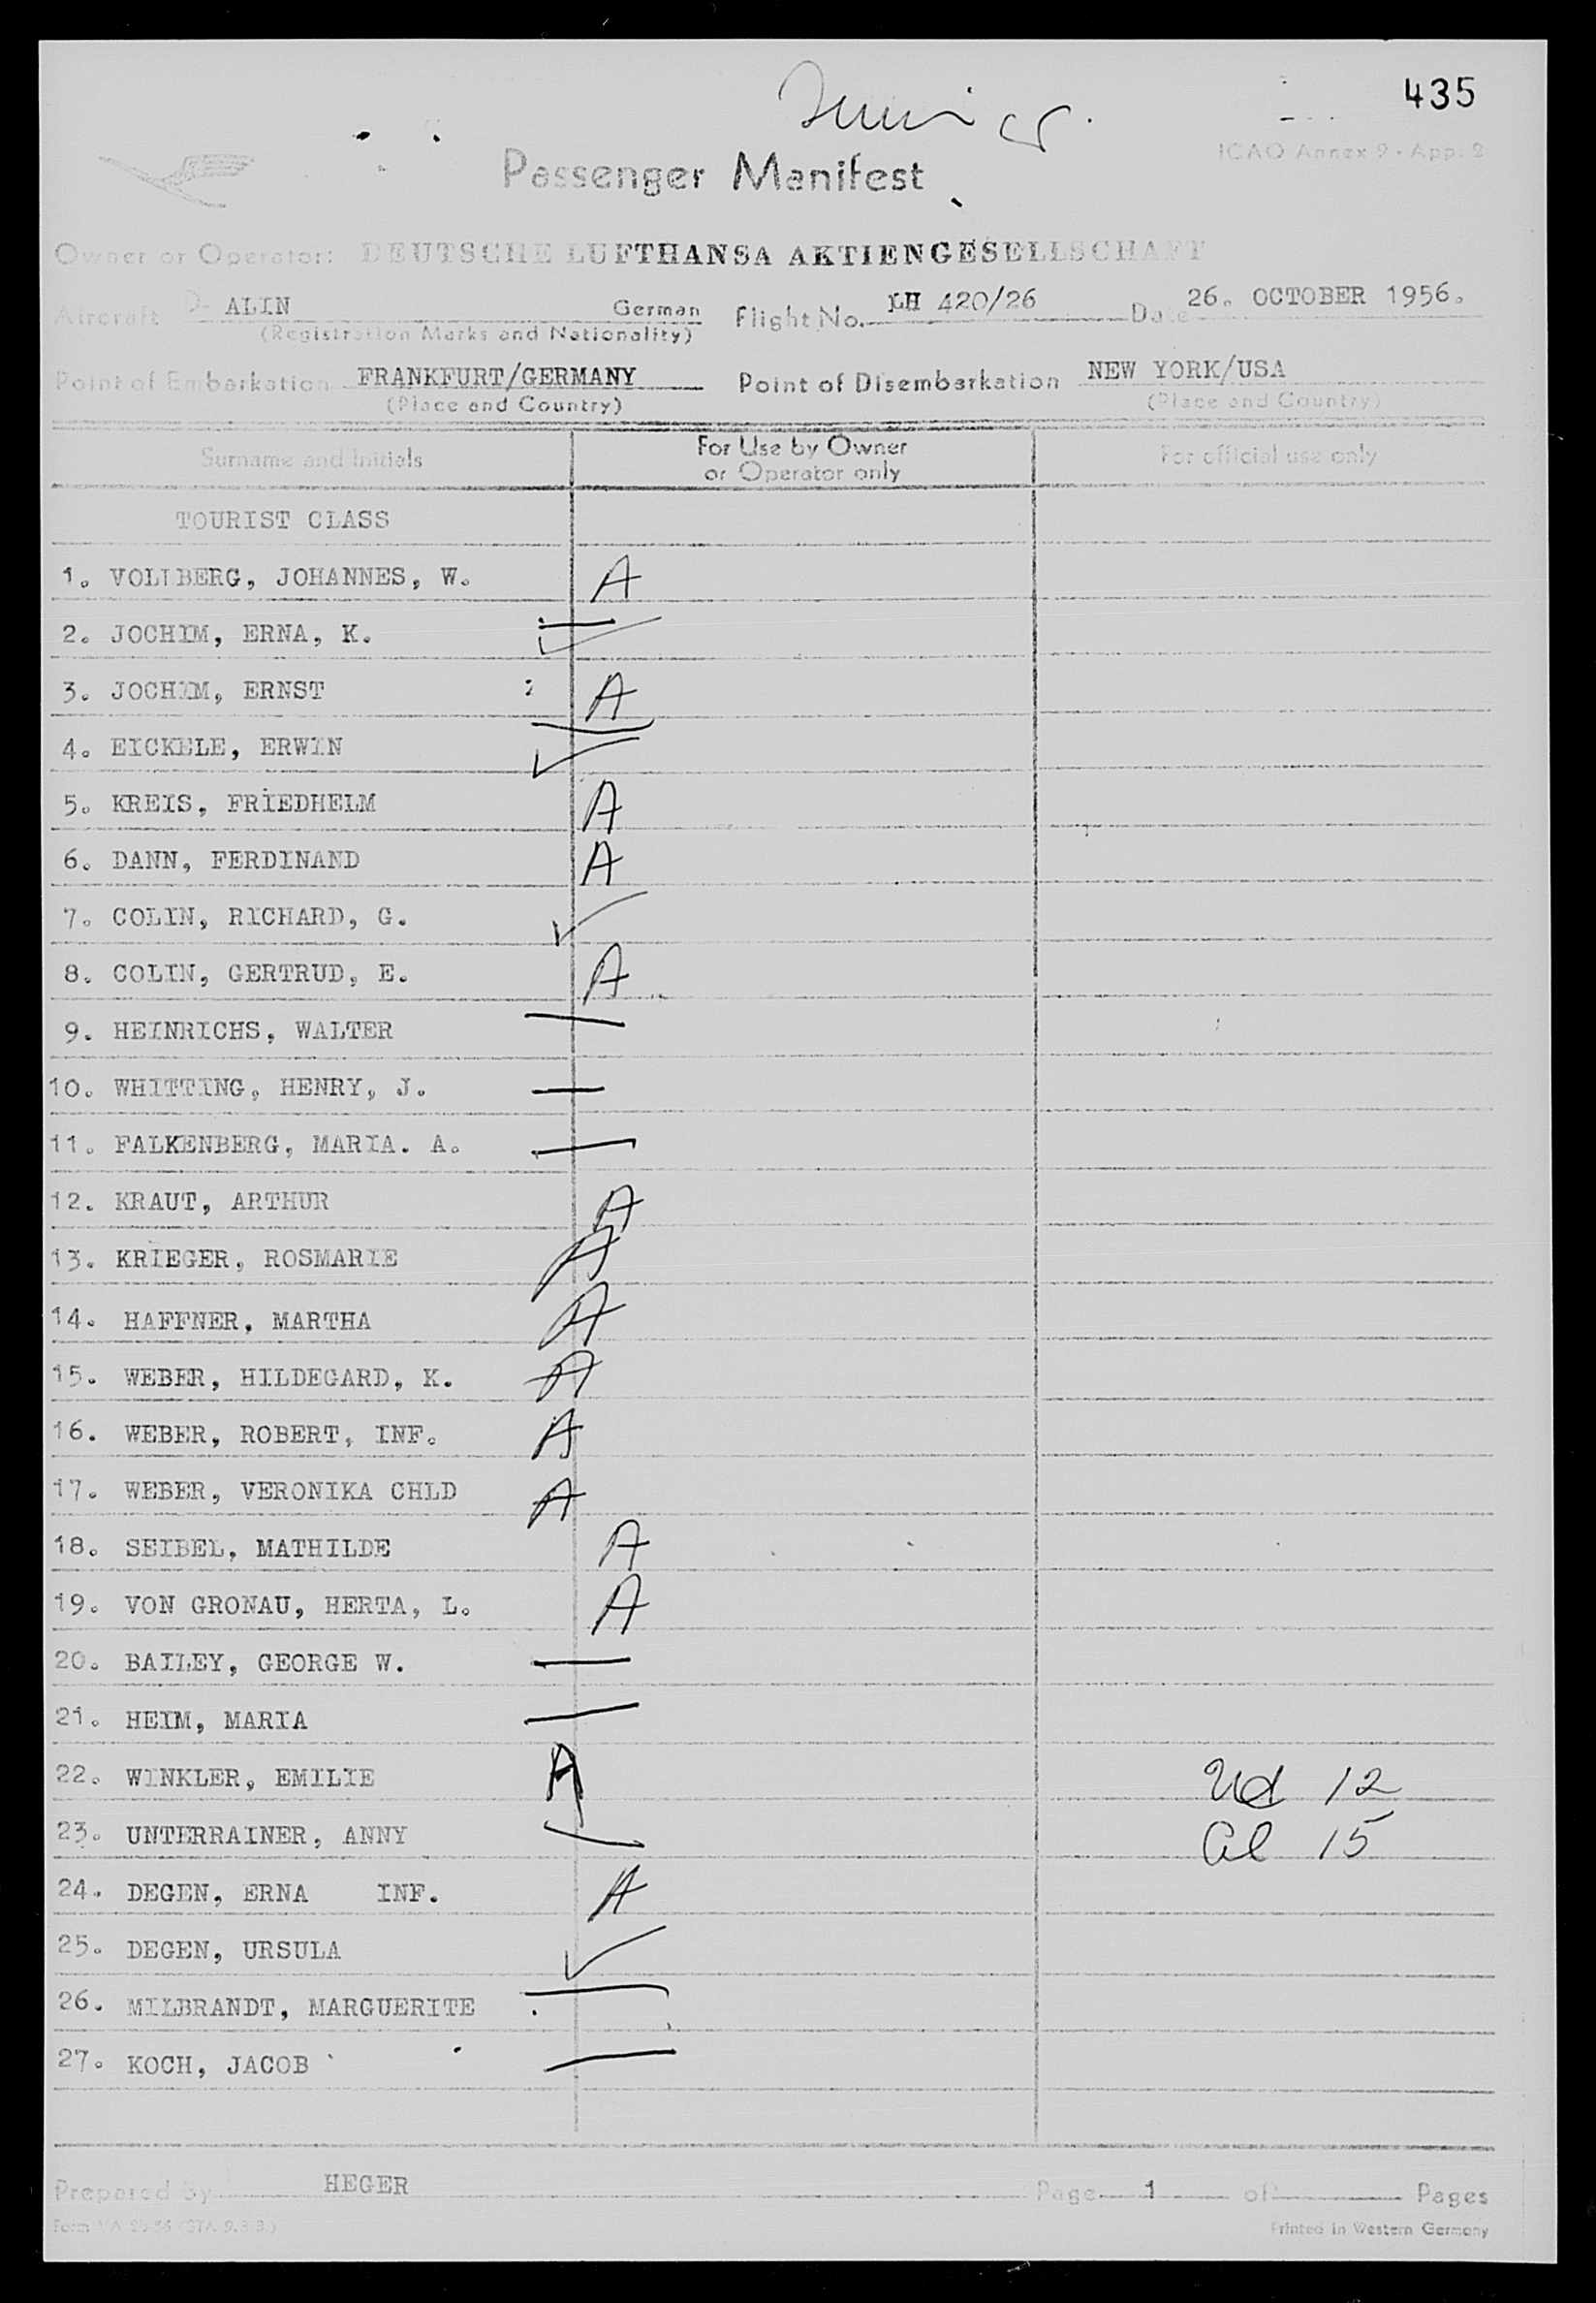 435
ICAO Annex 9 - App. 2
Passenger Manifest
Owner or Operator: DEUTSCHE LUFTHANSA AKTIENGESELLSCHAFT
Aircraft D- ALIN German Flight No. LH 420/26 Date 26. OCTOBER 1956.
(Registration Marks and Nationality)
Point of Embarkation FRANKFURT/GERMANY Point of Disembarkation NEW YORK/USA
(Place and Country) (Place and Country)
Surname and Initials For Use by Owner or Operator only For official use only
TOURIST CLASS
1. VOLLBERG, JOHANNES, W. A
2. JOCHIM, ERNA, K.
3. JOCHIM, ERNST A
4. EICKELE, ERWIN
5. KREIS, FRIEDHELM A
6. DANN, FERDINAND A
7. COLIN, RICHARD, G.
8. COLIN, GERTRUD, E. A
9. HEINRICHS, WALTER
10. WHITTING, HENRY, J.
11. FALKENBERG, MARIA. A.
12. KRAUT, ARTHUR A
13. KRIEGER, ROSMARIE A
14. HAFFNER, MARTHA A
15. WEBER, HILDEGARD, K. A
16. WEBER, ROBERT, INF. A
17. WEBER, VERONIKA CHLD A
18. SEIBEL, MATHILDE A
19. VON GRONAU, HERTA, L. A
20. BAILEY, GEORGE W.
21. HEIM, MARIA
22. WINKLER, EMILIE A 12
23. UNTERRAINER, ANNY 15
24. DEGEN, ERNA INF. A
25. DEGEN, URSULA
26. MILBRANDT, MARGUERITE
27. KOCH, JACOB
Prepared by HEGER Page 1 of Pages
Printed in Western Germany